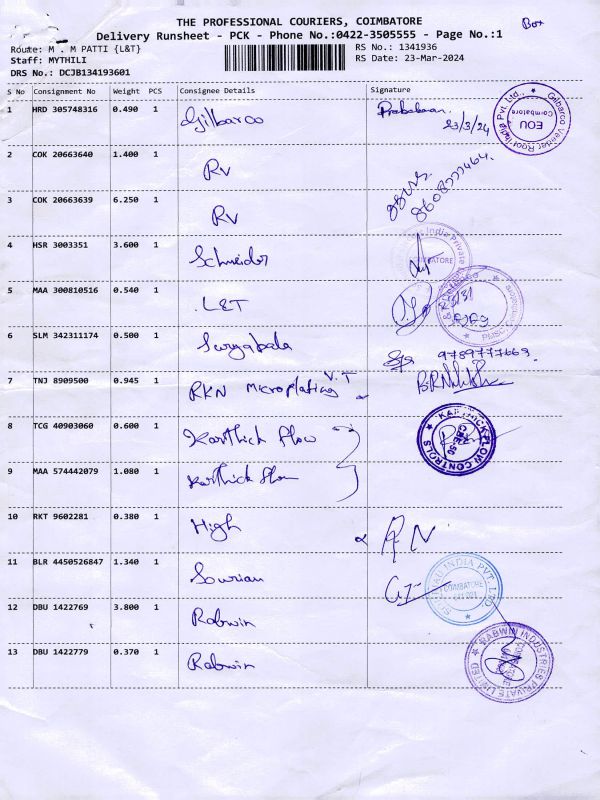 THE PROFESSIONAL COURIERS, COIMBATORE
Box
Delivery Runsheet - PCK - Phone No.:0422-3505555 - Page No.:1
Route: M . M PATTI {L&T}
RS No.: 1341936
Staff: MYTHILI
RS Date: 23-Mar-2024
DRS No.: DCJB134193601
S No Consignment No Weight PCS Consignee Details Signature
1 HRD 305748316 0.490 1 Gilbarco Prabakaran
23/3/24
Gilbarco Veeder Root India Pvt. Ltd., EOU Coimbatore
2 COK 20663640 1.400 1 RV
3 COK 20663639 6.250 1 RV
4 HSR 3003351 3.600 1 Schneider
5 MAA 300810516 0.540 1 L&T
6 SLM 342311174 0.500 1 Suryabala 9789777669.
7 TNJ 8909500 0.945 1 RKN Microplating V.T
8 TCG 40903060 0.600 1 Karthick Flow
KARTHICK FLOW CONTROLS
9 MAA 574442079 1.080 1 Karthick Flow
10 RKT 9602281 0.380 1 High
11 BLR 4450526847 1.340 1 Sourian
INDIA PVT. LTD
COIMBATORE
12 DBU 1422769 3.800 1 Rabwin
13 DBU 1422779 0.370 1 Rabwin
RABWIN INDUSTRIES PRIVATE LIMITED